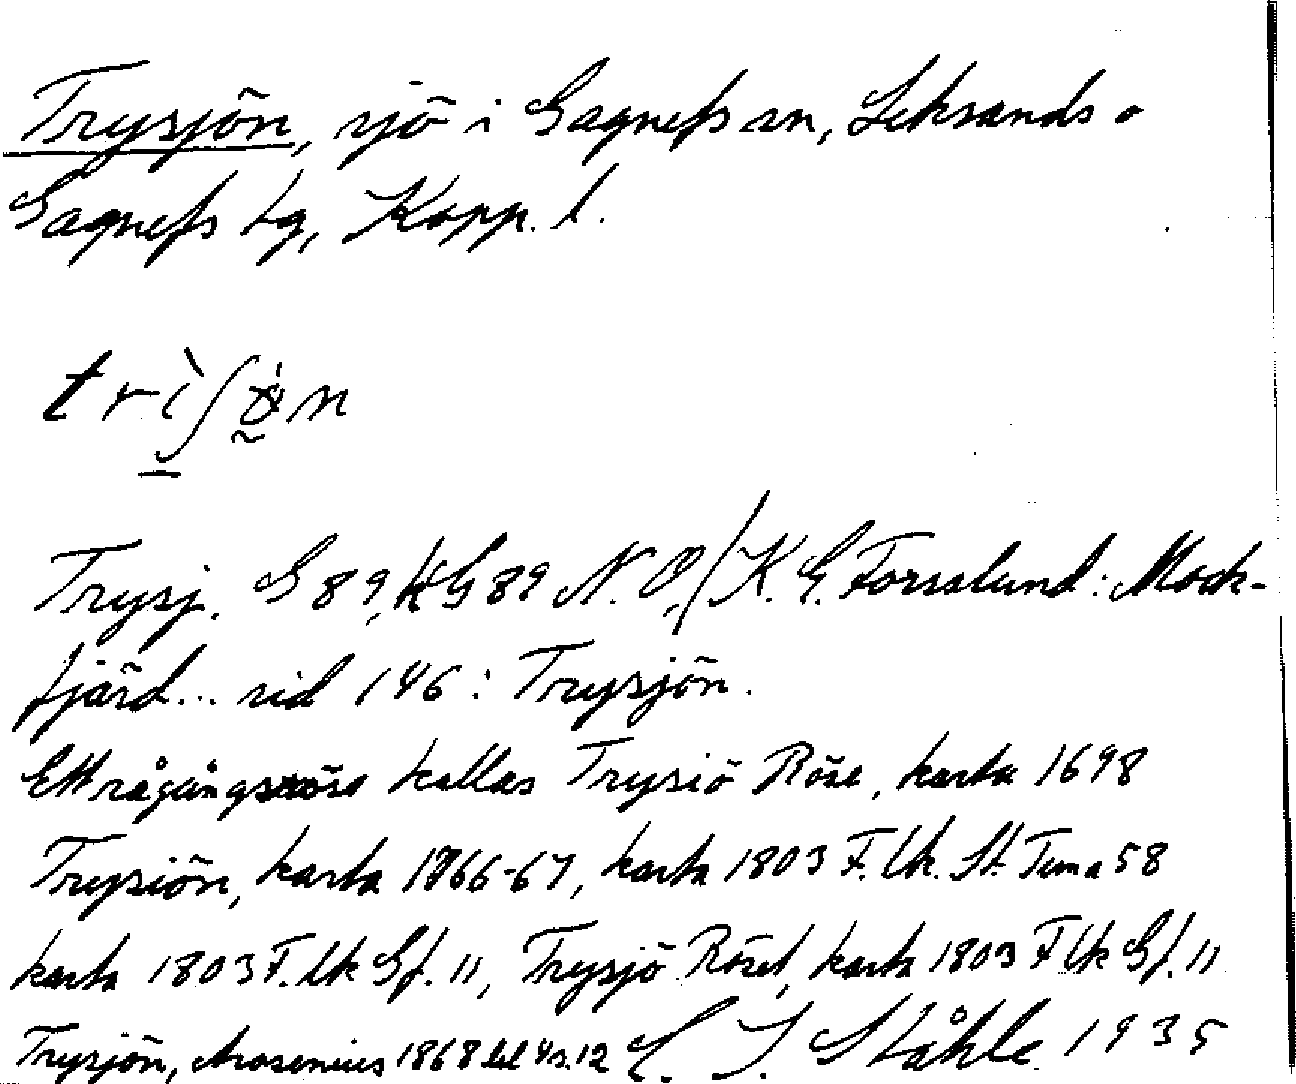 Trysjön, sjö i Gagnefs sn, Leksands o
Gagnefs tg, Kopp. l.
Trysj. G 89, HG 89 N.O, K. E. Forsslund: Mock-
fjärd... sid 146: Trysjön.
Ett rågångsröse kallas Trysiö Röse, karta 1698
Trysiön, karta 1766-67, karta 1803 F. lk. St. Tuna 58
karta 1803 F. lk Gf. 11, Trysjö Röset, karta 1803 F lk Gf. 11
Trysjön, Arosenius 1868 del 4 s. 12 C. I. Ståhle 1935